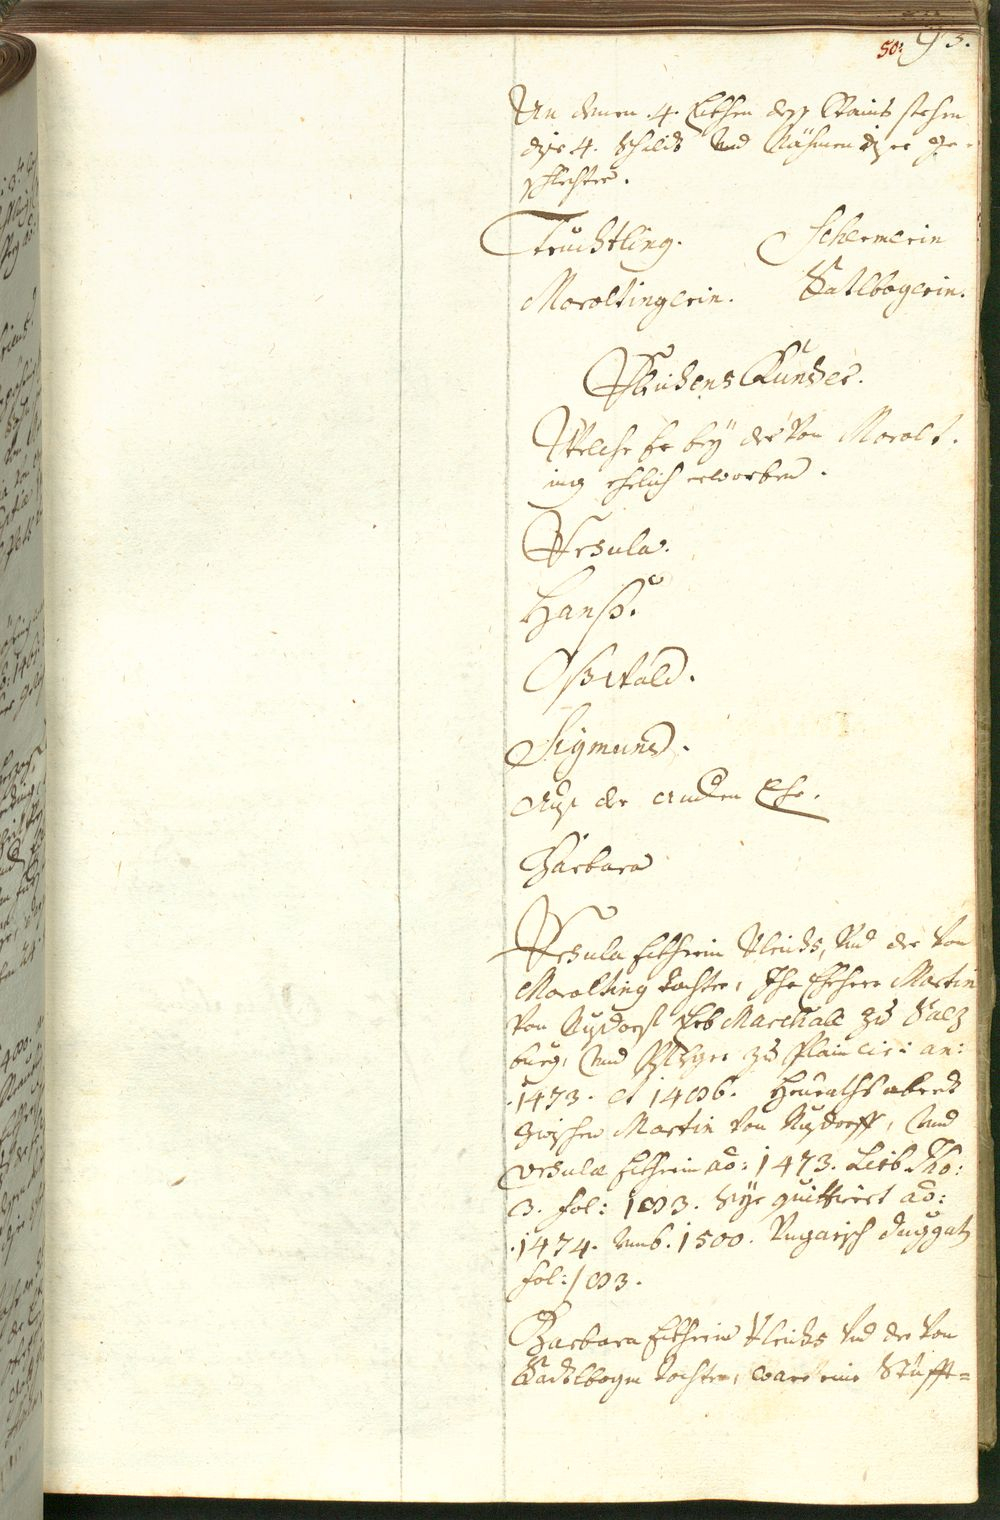 50: 93.
An denen .4. Eckhen deß Stains stehen
dise 4. Schildt Und Nahmen diser Ge-
schlechter.
Truchtling. Schermerin
Maroltingerin. Satlbogerin.
Ulrichens Künder.
Welche Er bey der Von Marolt.
ing ehelich erworben.
Ursula.
Hanß.
Oßwald.
Sigmund.
Auß der andern Ehe.
Barbara
Ursula Ulrichs, Und der Von
Marolting dochter, Ihr Eheherr Martin
Von Nusdorff Erb Marchall zu Salz
burg, Und Pfleger zu Plain an:
.1473. et 1486. Heuraths abredt
zwischen Martin Von Nusdorff, Und
Ursula ao: 1473. Lit: Tho:
3. fol: 183. Sye quittiert ao:
.1474. Umb. 1500. Ungarisch duggatn
fol: 183.
Barbara Ulrichs Und der Von
Sadlbogen dochter, ware eine Stüfft=